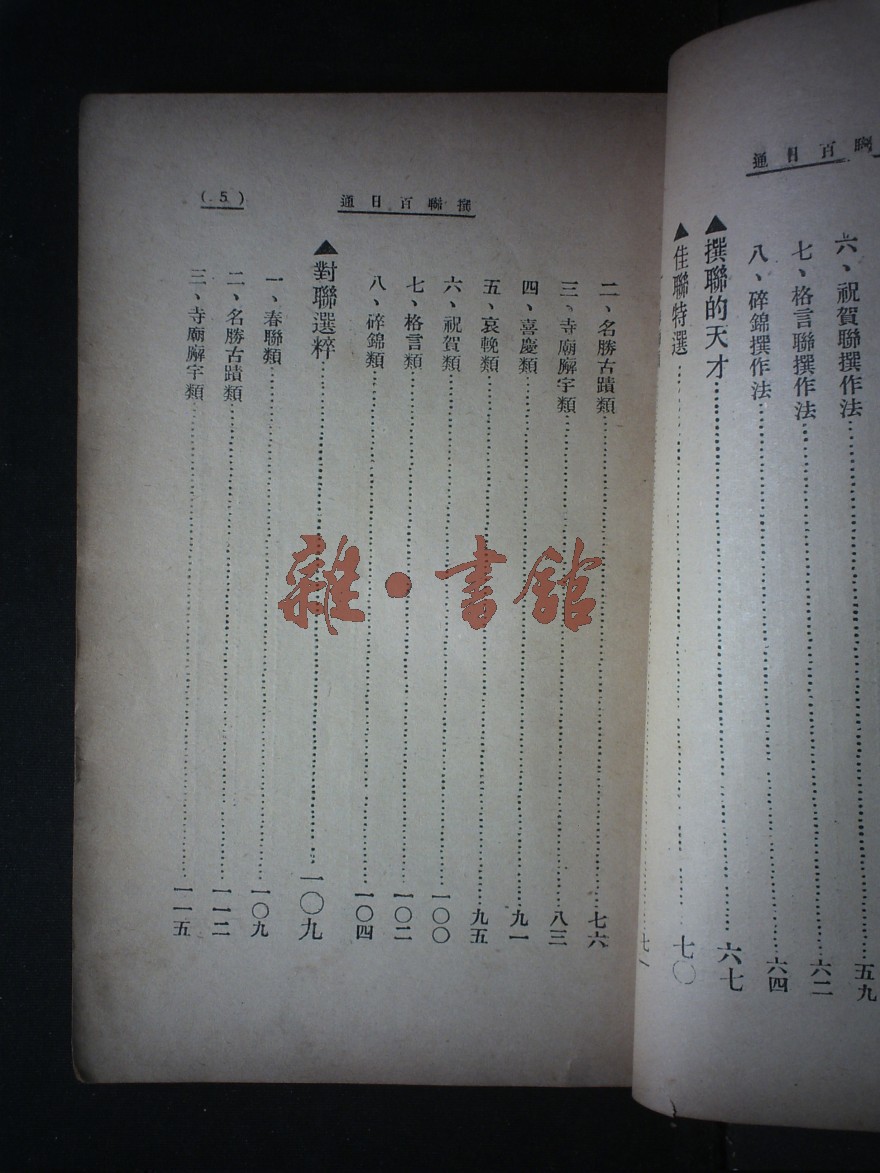 通日百聯
六、祝賀聯撰作法⋯⋯五九
七、格言聯撰作法⋯⋯六二
八、碎錦撰作法⋯⋯六四
▲撰聯的天才⋯⋯六七
▲佳聯特選⋯⋯七〇
通日百聯撰
(5)
二、名勝古蹟類⋯⋯七六
三、寺廟廨宇類⋯⋯八三
四、喜慶類⋯⋯九一
五、哀輓類⋯⋯九五
六、祝賀類⋯⋯一〇〇
七、格言類⋯⋯一〇二
八、碎錦類⋯⋯一〇四
▲對聯選粹⋯⋯一〇九
一、春聯類⋯⋯一〇九
二、名勝古蹟類⋯⋯一一二
三、寺廟廨宇類⋯⋯一一五
雜·書館